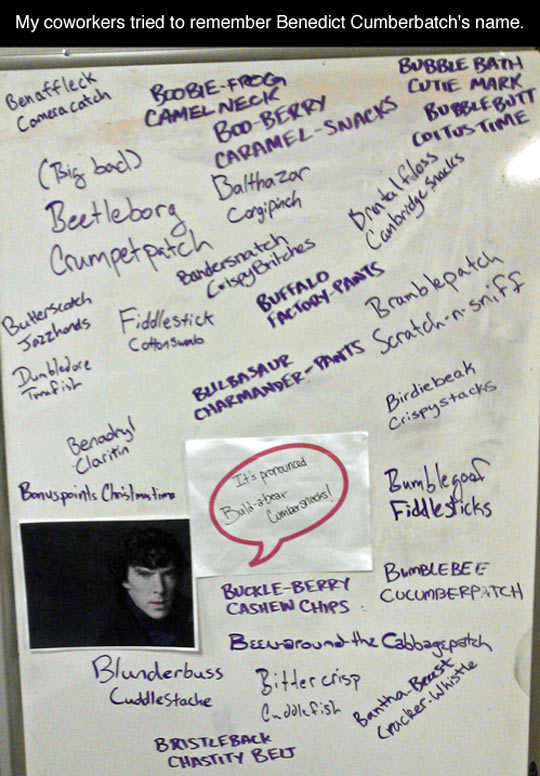 My coworkers tried to remember Benedict Cumberbatch's name.
Benaffleck
Cameracatch
BOOBIE-FROG
CAMEL NECK
BUBBLE BATH
CUTIE MARK
BOO-BERRY
CARAMEL-SNACKS
BUBBLEBUTT
COITUS TIME
(Big bad)
Beetleborg
Crumpetpatch
Balthazar
Corgipinch
Dental floss
Cambridge snacks
Bandersnatch
CrispyBritches
BUFFALO
FACTORY-PANTS
Bramblepatch
Scratch-n-sniff
Butterscotch
Jazzhands
Fiddlestick
Cottonswab
Dumbledore
Tunafish
BULBASAUR
CHARMANDER-PANTS
Birdiebeak
Crispystacks
Benadryl
Claritin
Bonuspoints Christmastime
It's pronounced
Build-a-bear
Cumbersnacks!
Bumblegoof
Fiddlesticks
BUCKLE-BERRY
CASHEW CHIPS
BUMBLEBEE
CUCUMBERPATCH
Been-around-the Cabbagepatch
Blunderbuss
Cuddlestache
Bittercrisp
Cuddlefish
Bantha-Breast
Cracker-Whistle
BRISTLEBACK
CHASTITY BELT